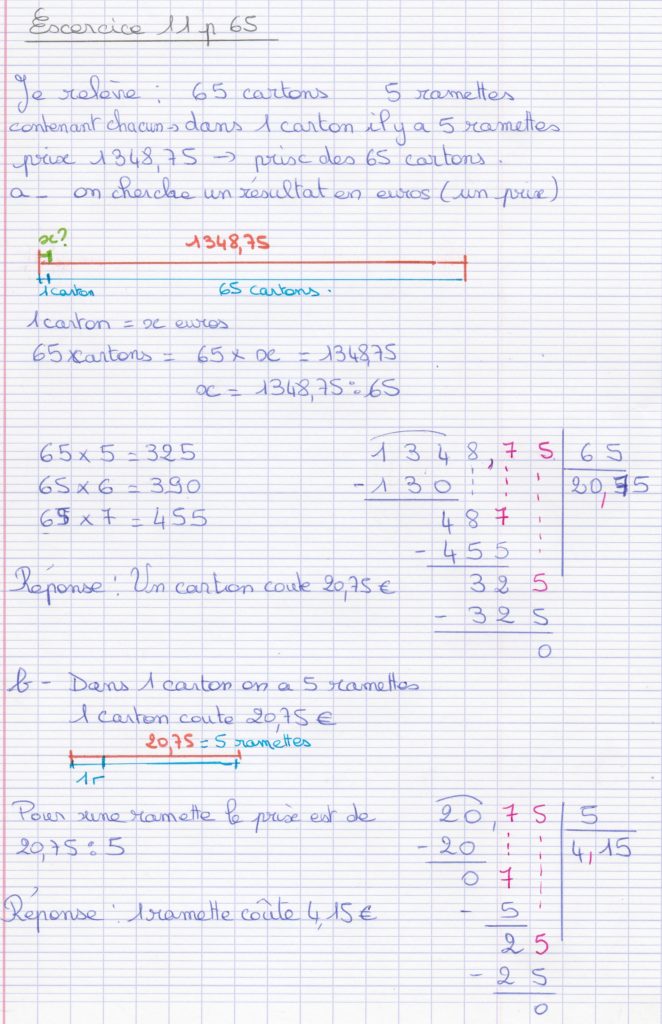 Excercice 11 p 65
Je relève : 65 cartons 5 ramettes
contenant chacun → dans 1 carton il y a 5 ramettes
prix 1348,75 → prix des 65 cartons.
a - on cherche un résultat en euros (un prix)
x? 1348,75
1 carton 65 cartons.
1 carton = x euros
65 x cartons = 65 × x = 1348,75
x = 1348,75 : 65
65 × 5 = 325
65 × 6 = 390
65 × 7 = 455
1348,75 65
- 130 20,75
487
- 455
325
- 325
0
Réponse : Un carton coute 20,75 €
b - Dans 1 carton on a 5 ramettes
1 carton coute 20,75 €
20,75 = 5 ramettes
1r
Pour une ramette le prix est de
20,75 : 5
20,75 5
- 20 4,15
07
- 5
25
- 25
0
Réponse : 1 ramette coûte 4,15 €